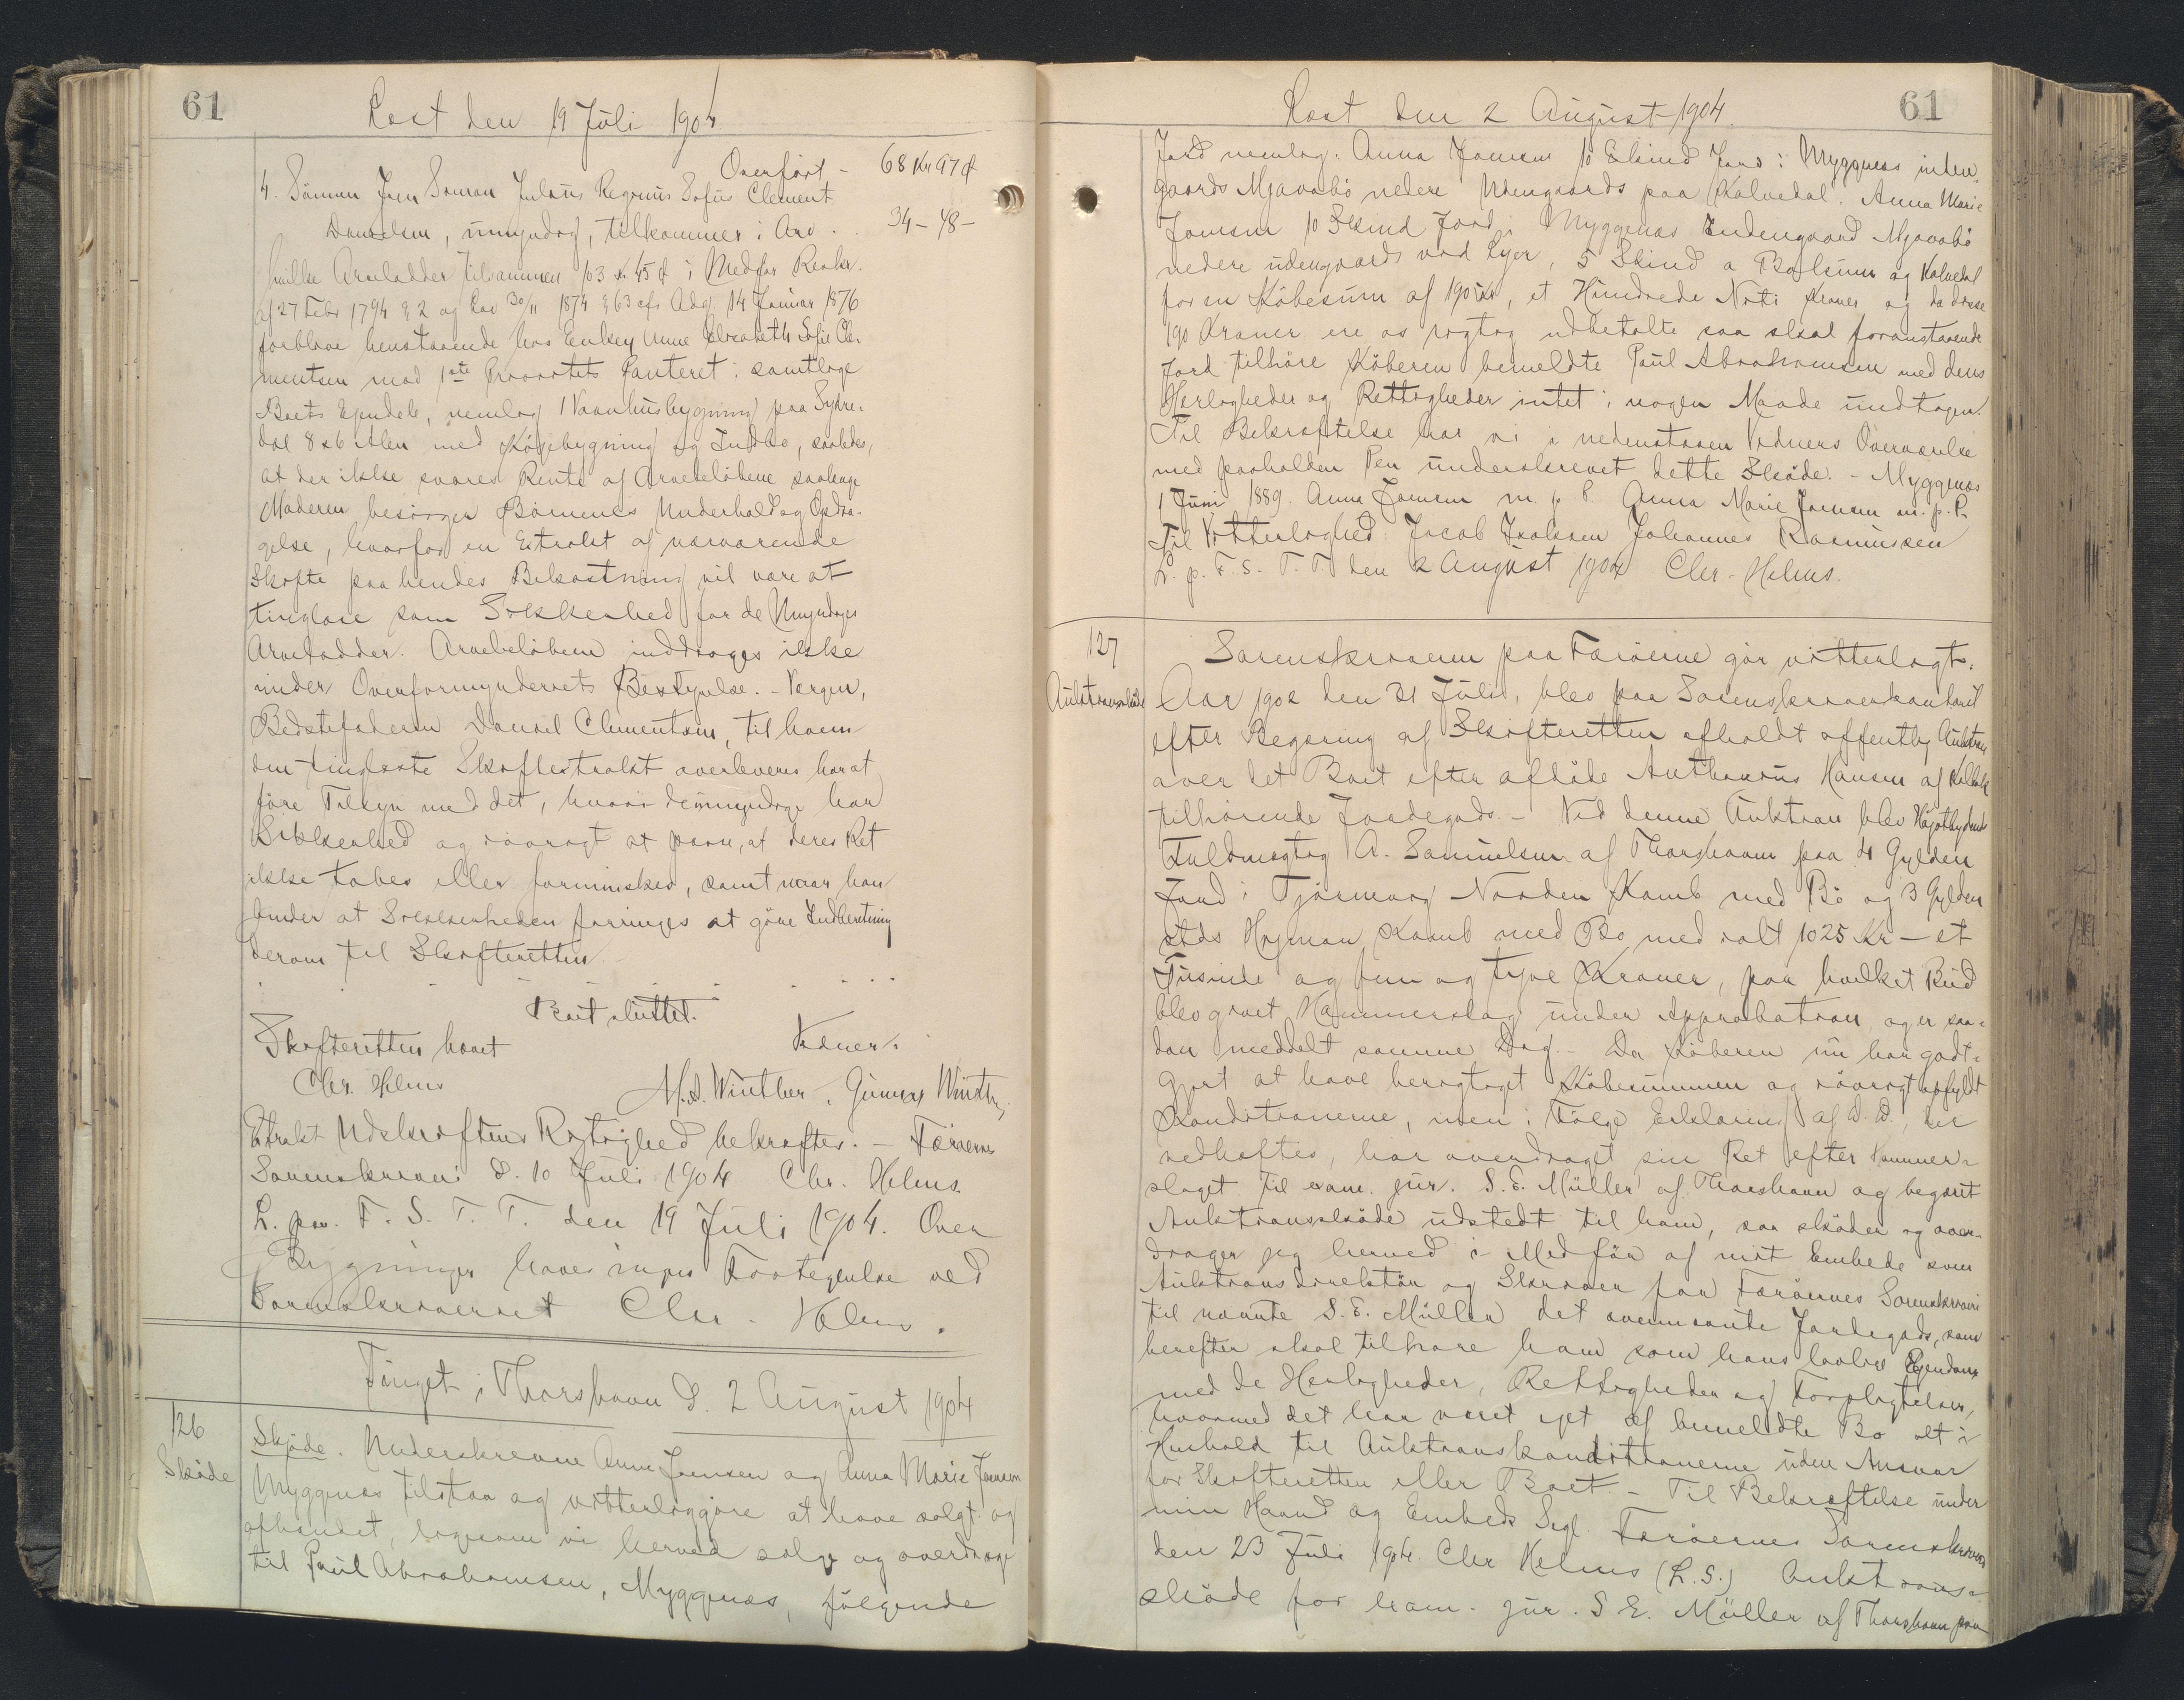 61
Læst den 19 Juli 1904
Overført - 68 Kr 97 Ø
4. Sønnen Jens Simon Julius Regnius Sofus Clement
Danielsen, umyndig, tilkommer i Arv . . 34 - 48 -
hvilke Arvelodder tilsammen 103 Kr 45 Ø i Medfør Reskr.
af 27 Febr 1794 § 2 og Lov 30/11 1874 § 63 cfr Adg. 14 Januar 1876
forblive henstaaende hos Enken Anne Elisabeth Sofie Cle-
mentsen mod 1ste Prioritets Panteret i samtlige
Boets Ejendele, nemlig 1 Vaanhusbygning paa Sydre-
dal 8 x 6 Alen med Kögebygning og Indbo, saaledes,
at der ikke svares Rente af Arvebeløbene saalænge
Moderen besørger Børnenes Underhold og Opdra-
gelse, hvorfor en Extrakt af nærværende
Skifte paa hendes Bekostning vil være at
tinglæse som Sikkerhed for de Umyndiges
Arvelodder. Arvebeløbene inddrages ikke
under Overformynderiets Bestyrelse. - Værgen,
Bedstefaderen Daniel Clementsen, til hvem
den tinglæste Skifteextrakt overleveres har at
føre Tilsyn med det, hvori de umyndige har
Sikkerhed og iøvrigt at paase, at deres Ret
ikke tabes eller formindskes, samt naar han
finder at Sikkerheden forringes at göre Indberetning
derom til Skifteretten.
Boet sluttet.
Skifteretten hævet Vidner:
Chr. Helms M.S. Winther. Gunnar Winther
Extrakt Udskriftens Rigtighed bekræftes. - Færøernes
Sorenskriveri d. 10 Juli 1904 Chr. Helms.
L. paa F. S. T. T. den 19 Juli 1904. Over
Bygninger haves ingen Fortegnelse ved
Sorenskriveriet Chr. Helms.
Tinget i Thorshavn d. 2 August 1904
126
Skøde
Skjøde. Underskrevne Anna Joensen og Anna Marie Joensen
Myggenæs tilstaa og vitterliggjøre at have solgt og
afhændet, ligesom vi herved sælge og overdrage
til Paul Abrahamsen, Myggenæs, følgende
61
Læst den 2 August 1904.
Jord nemlig: Anna Joensen 10 Skind Jord i Myggenæs inden-
gaards Mjavabø nedere Udengaards paa Kalvedal. Anna Marie
Joensen 10 Skind Jord i Myggenæs Indengaard Mjavabø
nedere udengaards ved Lyer, 5 Skind a Bolsum og Kalvedal
for en Købesum af 190 Kr, et Hundrede Niti Kroner og da disse
190 Kroner ere os rigtig udbetalte saa skal foranstaaende
Jord tilhøre Køberen bemeldte Paul Abrahamsen med dens
Herligheder og Rettigheder intet i nogen Maade undtagen.
Til Bekræftelse har vi i nedenstaaen Vidners Overværelse
med paaholden Pen underskrevet dette Skøde. - Myggenæs
1 Juni 1889. Anna Joensen m. p. P. Anna Marie Joensen m. p. P.
Til Vitterlighed: Jacob Isaksen Johannes Rasmussen
L. p. F. S. T. T. den 2 August 1904 Chr. Helms.
127
Auktionsskøde
Sorenskriveren paa Færøerne gør vitterligt:
Aar 1902 den 31 Juli, blev paa Sorenskriverkontoret
efter Begæring af Skifteretten afholdt offentlig Auktion
over det Boet efter afdøde Anthonius Hansen af
tilhørende Jordegods. - Ved denne Auktion blev Højstbydende
Fuldmægtig A. Samuelsen af Thorshavn paa 4 Gylden
Jord i Tjørnevig Norden Kamb med Bø og 3 Gylden
stds Heyman Kamb med Bø, med ialt 1025 Kr - et
Tusinde og fem og tyve Kroner, paa hvilket Bud
blev givet Hammerslag under Approbation, og er saa-
dan meddelt samme Dag. - Da Køberen nu har godt-
gjort at have berigtiget Købesummen og iøvrigt opfyldt
Konditionerne, men i Følge Erklæring af D. D., der
vedhæftes, har overdraget sin Ret efter Hammer-
slaget til exam. jur. S. E. Müller af Thorshavn og begæret
Auktionsskøde udstedt til ham, saa skøder og over-
drager jeg herved i Medfør af mit Embede som
Auktionsdirektør og Skriver for Færøernes Sorenskriveri
til nævnte S. E. Müller det ovennævnte Jordegods, som
herefter skal tilhøre ham som hans lovlige Ejendom
med de Herligheder, Rettigheder og Forpligtelser,
hvormed det har været ejet af bemeldte Bo alt i
Henhold til Auktionskonditionerne uden Ansvar
for Skifteretten eller Boet. - Til Bekræftelse under
min Haand og Embeds Segl. Færøernes Sorenskriveri
den 23 Juli 1904. Chr Helms (L.S.) Auktions-
skøde for exam. jur. S E. Müller af Thorshavn paa